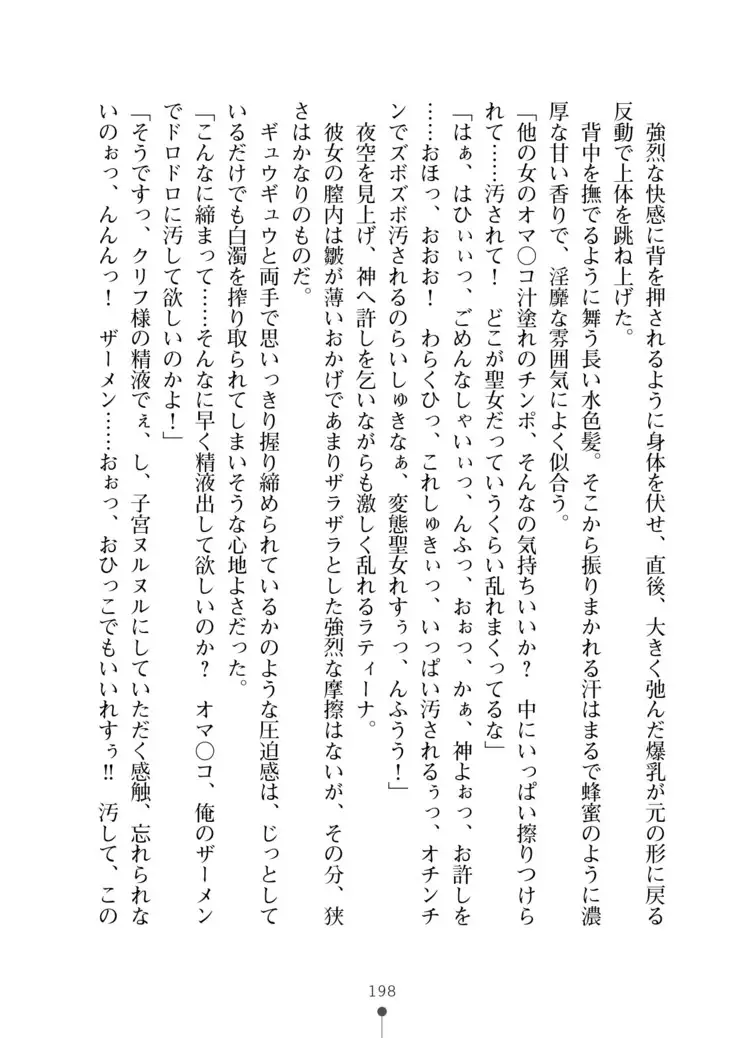 強烈な快感に背を押されるように身体を伏せ、直後、大きく弛んだ爆乳が元の形に戻る
反動で上体を跳ね上げた。
　背中を撫でるように舞う長い水色髪。そこから振りまかれる汗はまるで蜂蜜のように濃
厚な甘い香りで、淫靡な雰囲気によく似合う。
「他の女のオマ〇コ汁塗れのチンポ、そんなの気持ちいいか？　中にいっぱい擦りつけら
れて……汚されて！　どこが聖女だっていうくらい乱れまくってるな」
「はぁ、はひぃぃっ、ごめんなしゃいぃっ、んふっ、おぉっ、かぁ、神よぉっ、お許しを
……おほっ、おおお！　わらくひっ、これしゅきぃっ、いっぱい汚されるぅっ、オチンチ
ンでズボズボ汚されるのらいしゅきなぁ、変態聖女れすぅっ、んふうう！」
　夜空を見上げ、神へ許しを乞いながらも激しく乱れるラティーナ。
　彼女の膣内は皺が薄いおかげであまりザラザラとした強烈な摩擦はないが、その分、狭
さはかなりのものだ。
　ギュウギュウと両手で思いっきり握り締められているかのような圧迫感は、じっとして
いるだけでも白濁を搾り取られてしまいそうな心地よさだった。
「こんなに締まって……そんなに早く精液出して欲しいのか？　オマ〇コ、俺のザーメン
でドロドロに汚して欲しいのかよ！」
「そうですっ、クリフ様の精液でぇ、し、子宮ヌルヌルにしていただく感触、忘れられな
いのぉっ、んんんっ！　ザーメン……おぉっ、おひっこでもいいれすぅ!!　汚して、この
198